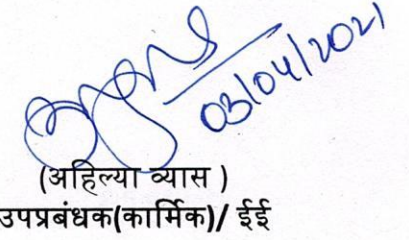 03/04/2021
(अहिल्या व्यास )
उपप्रबंधक(कार्मिक)/ ईई